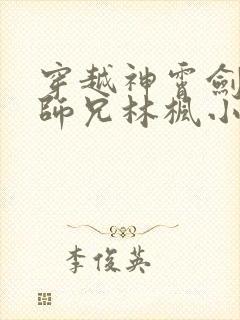 穿越神霄劍
師兄林楓小
李俊英